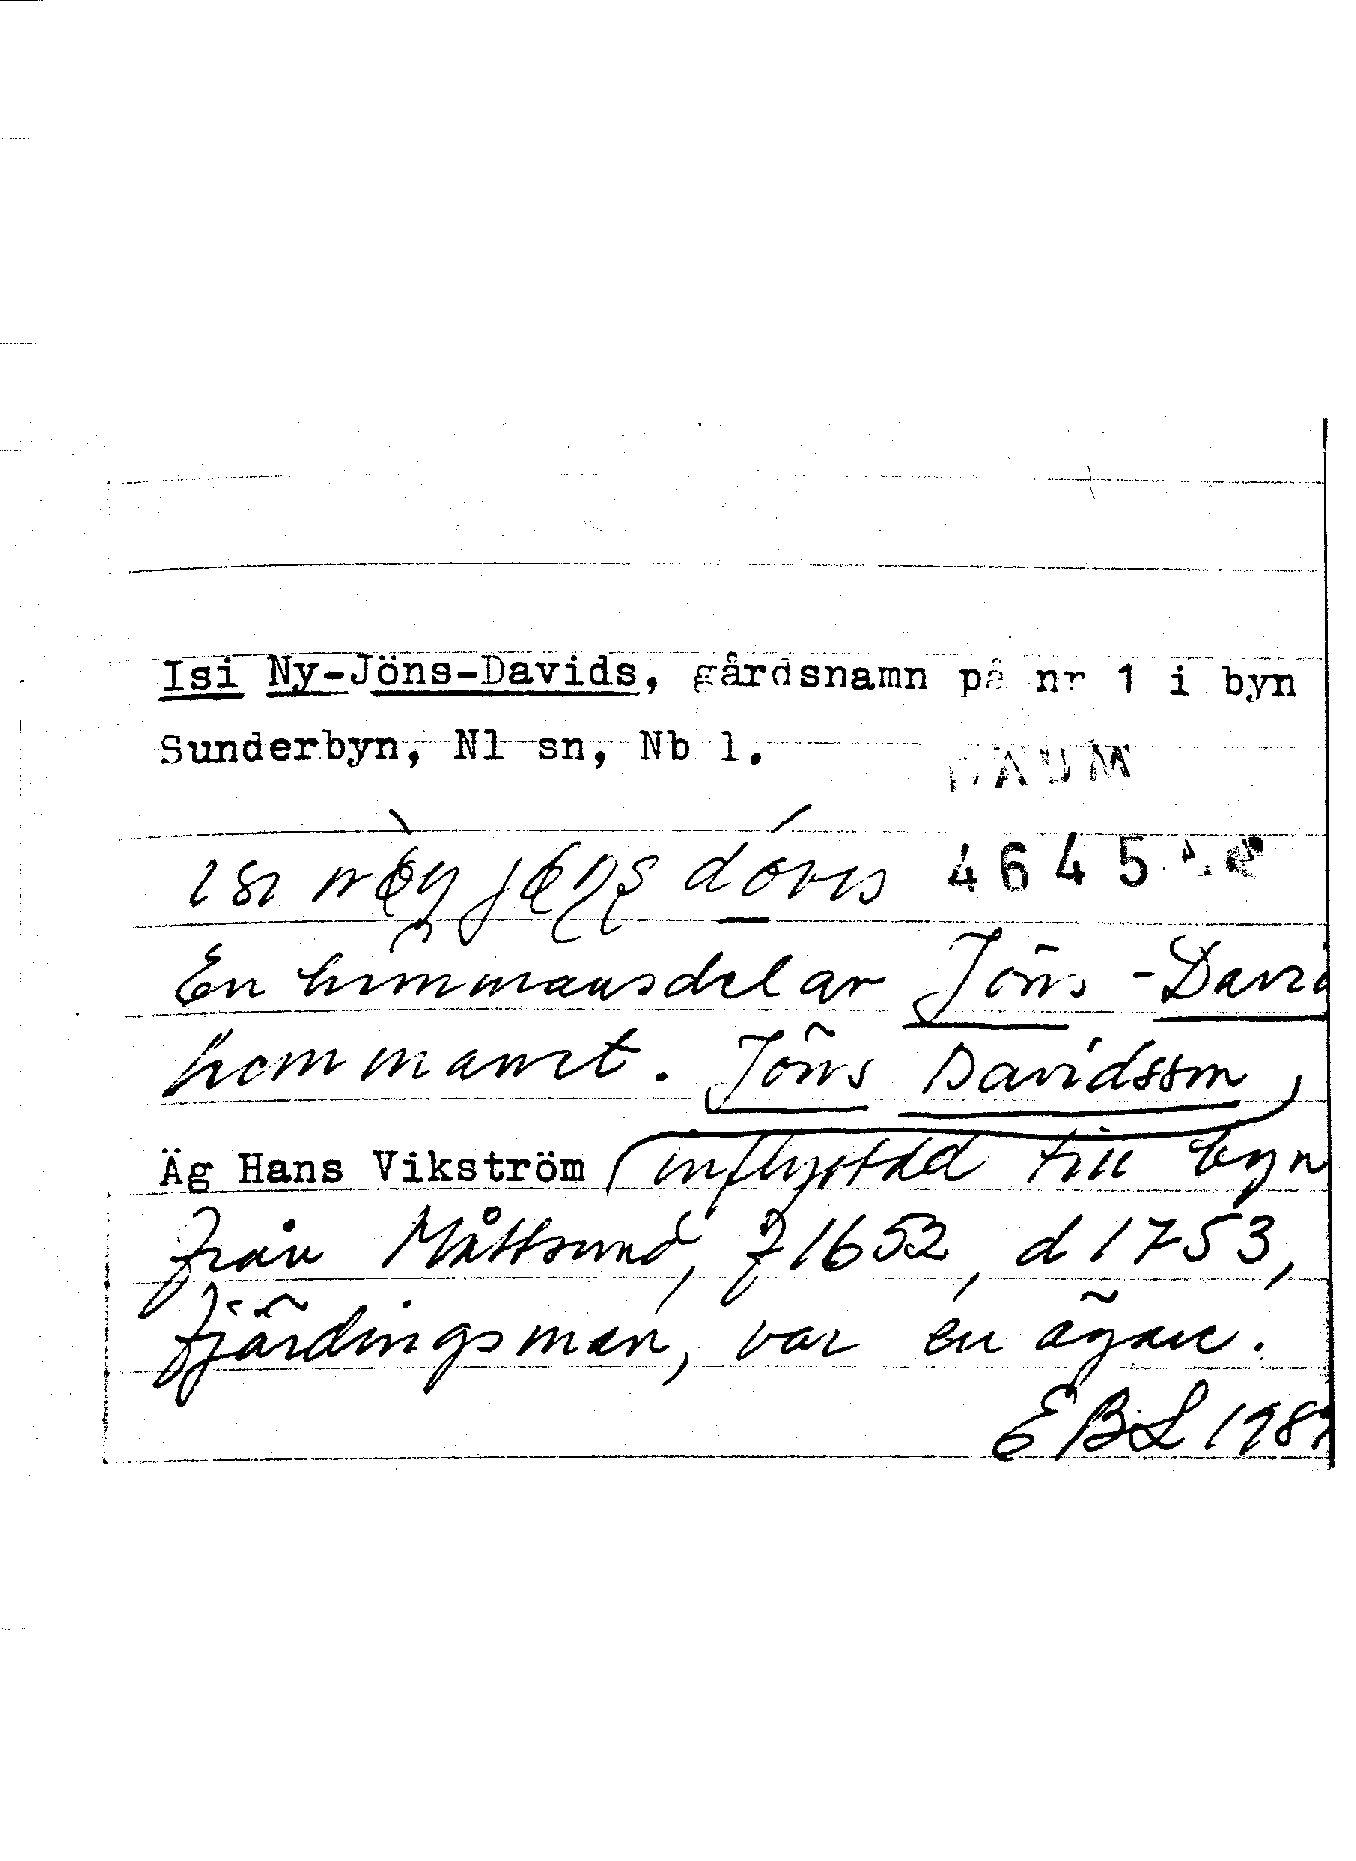 Isi Ny-Jöns-Davids, gårdsnamn på nr 1 i byn
Sunderbyn, Nl sn, Nb l.
DAUM
isi dåvıs 4645
En hemmansdel av Jöns-David
hemmanet. Jöns Davidsson,
Äg Hans Vikström inflyttad till byn
från Måttsund, f 1652, d 1753,
fjärdingsman, var en ägare.
EBL 198